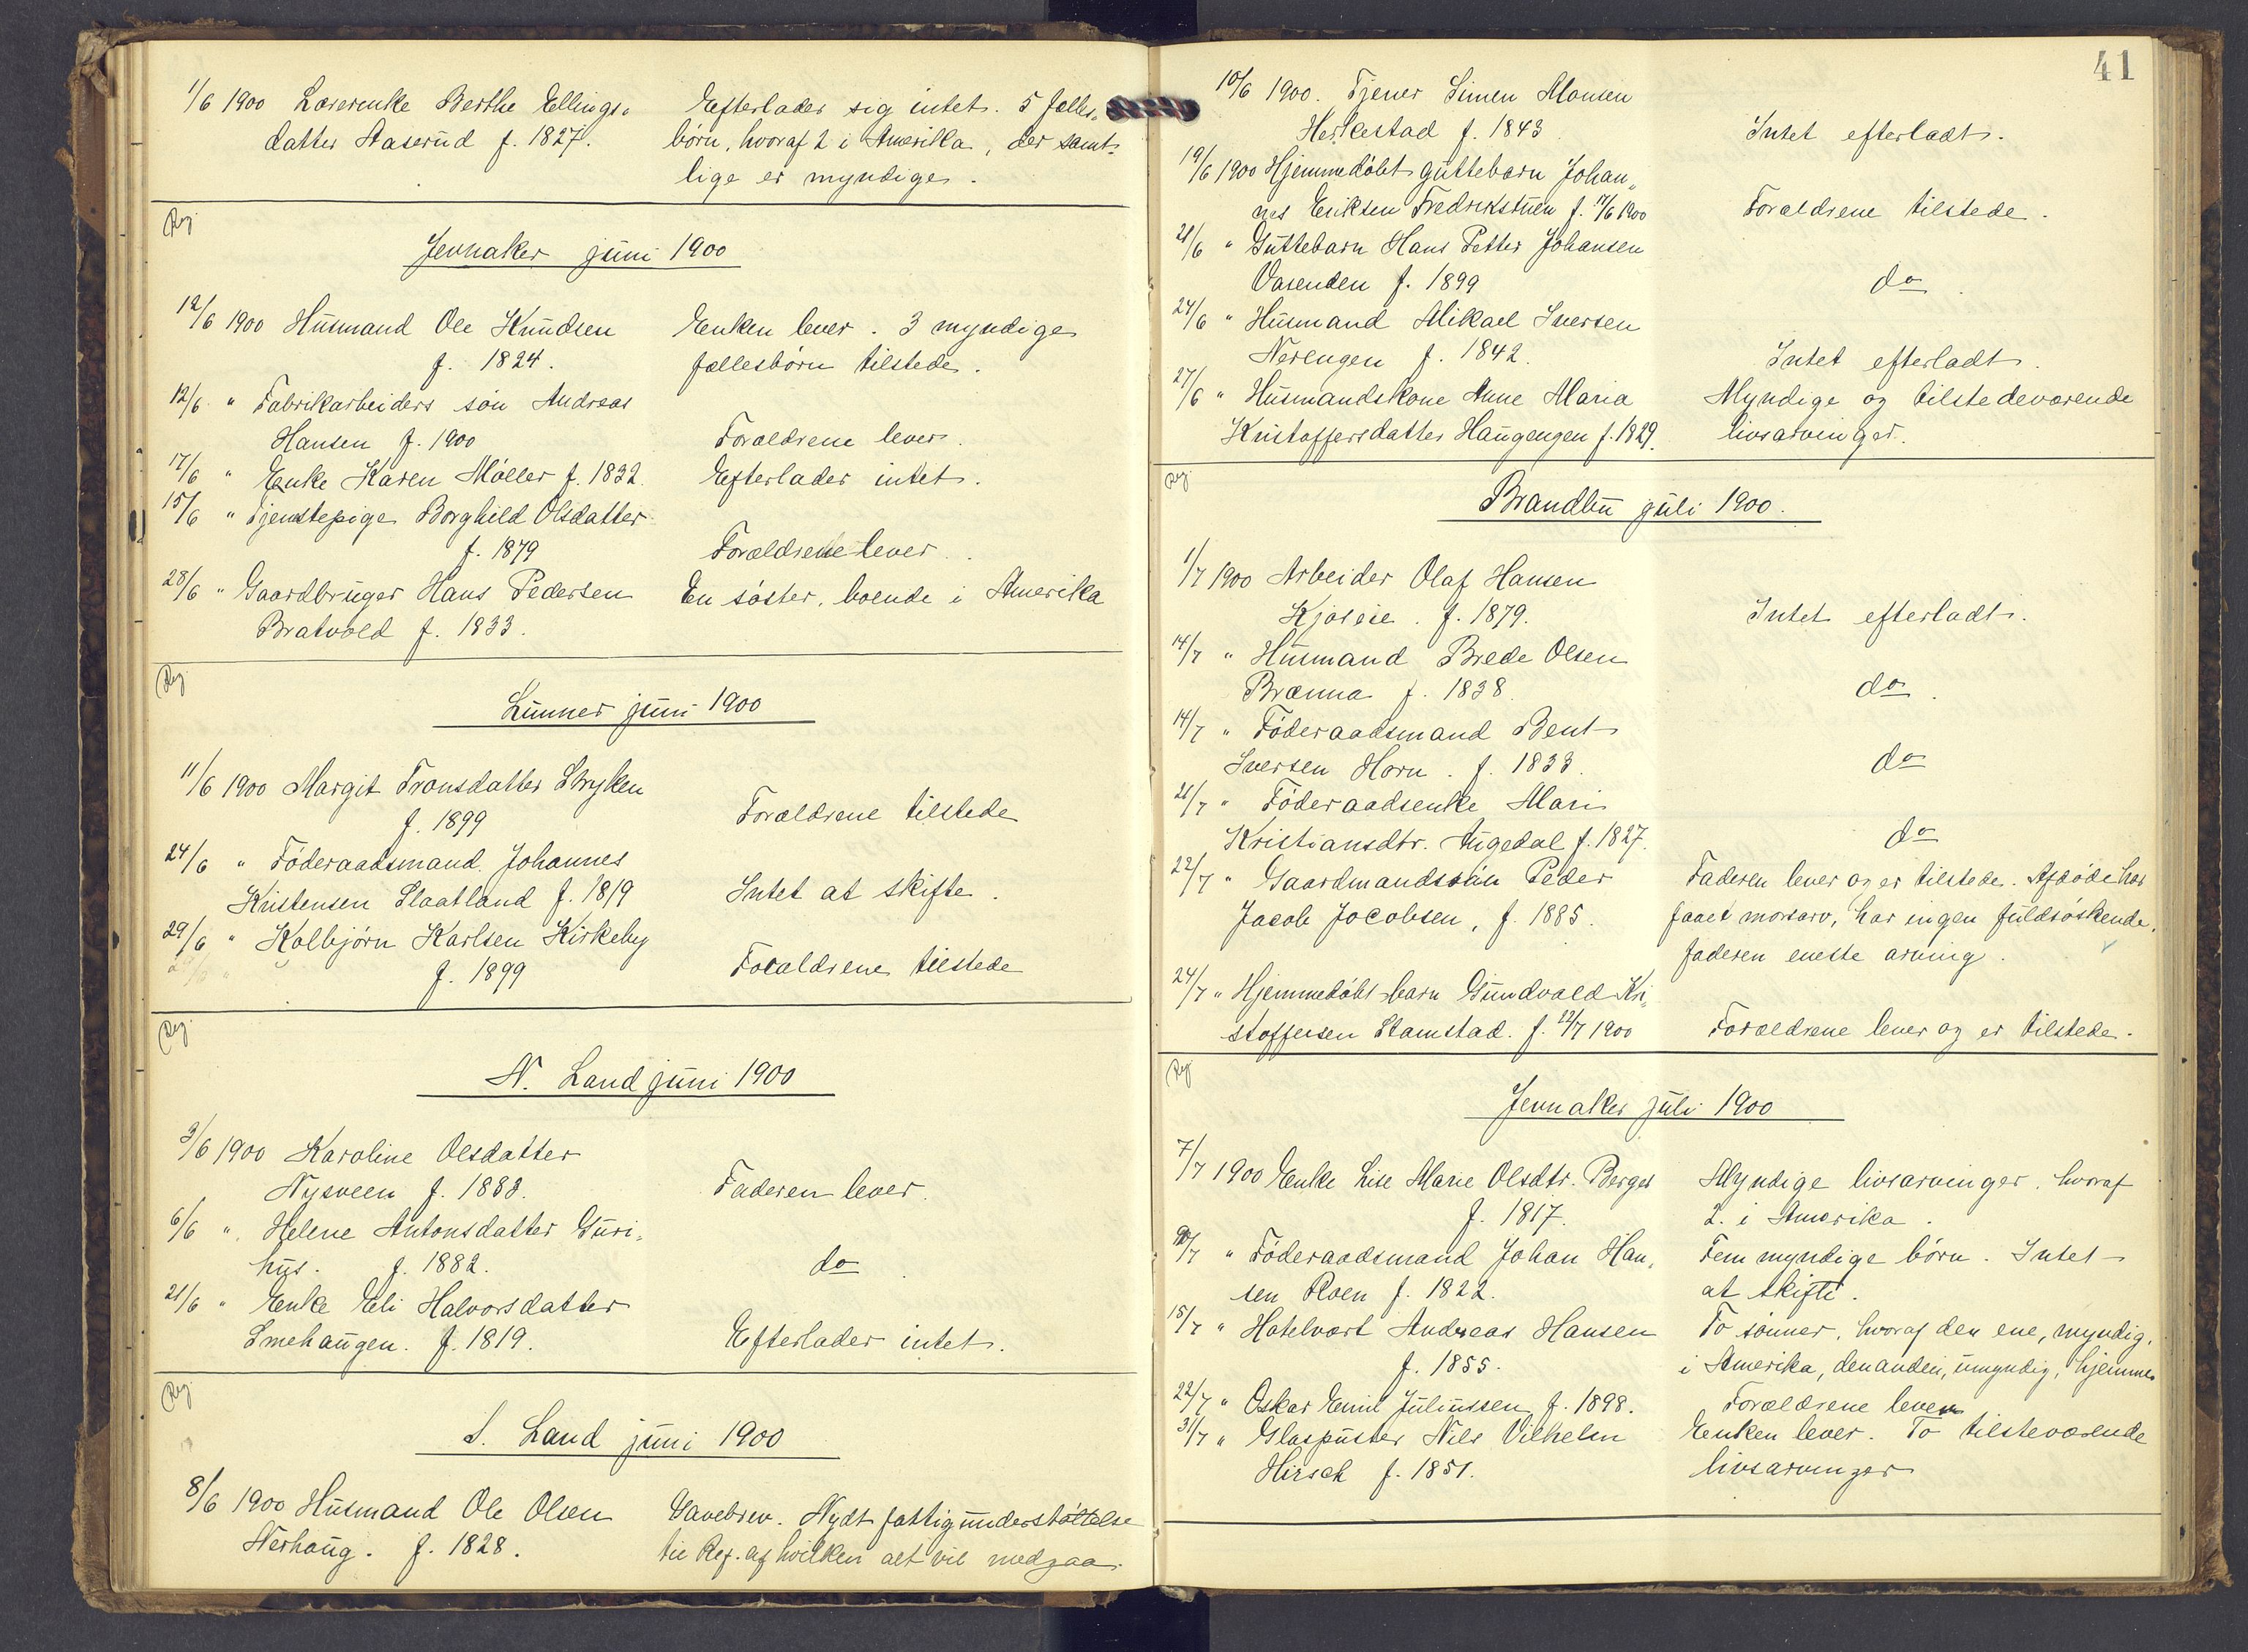 1/6 1900 Lærerenke Berthe Ellings-
datter Aaserud f. 1827.
Efterlader sig intet. 5 fælles-
børn, hvoraf 2 i Amerika, der samt-
lige er myndige.
Reg
Jevnaker juni 1900
12/6 1900 Husmand Ole Knudsen
f. 1824.
Enken lever. 3 myndige
fællesbørn tilstede.
12/6 " Fabrikarbeiders søn Andreas
Hansen f. 1900
Forældrene lever.
17/6 " Enke Karen Møller f. 1832.
Efterlader intet.
15/6 " Tjenstepige Borghild Olsdatter
f. 1879
Forældrene lever.
28/6 " Gaardbruger Hans Pedersen
Bratvold f. 1833.
En søster, boende i Amerika
Reg
Lunner juni 1900
11/6 1900 Margit Transdatter Stryken
f. 1899
Forældrene tilstede
24/6 " Føderaadsmand Johannes
Kristensen Slaatland f. 1819
Intet at skifte.
29/6 " Kolbjørn Karlsen Kirkeby
f. 1899
Forældrene tilstede
Reg
N. Land juni 1900
3/6 1900 Karoline Olsdatter
Nysveen f. 1883.
Faderen lever.
6/6 " Helene Antonsdatter Guri-
hus. f. 1882.
do.
21/6 " Enke Eli Halvorsdatter
Smehaugen. f. 1819.
Efterlader intet.
Reg
S. Land juni 1900
8/6 1900 Husmand Ole Olsen
Nerhaug. f. 1828.
Gavebrev. Nydt fattigunderstøttelse
til Ref. af hvilken alt vil medgaa.
41
10/6 1900. Tjener Simen Monsen
Herkestad f. 1843
Intet efterladt.
19/6 1900 Hjemmedøbt guttebarn Johan-
nes Eriksen Fredrikstuen f. 17/6 1900
Forældrene tilstede.
21/6 " Guttebarn Hans Petter Johansen
Vasenden f. 1899
do.
24/6 " Husmand Mikael Iversen
Nerengen f. 1842.
Intet efterladt.
27/6 " Husmandskone Anne Maria
Kristoffersdatter Haugengen f. 1829.
Myndige og tilstedeværende
livsarvinger.
Reg
Brandbu juli 1900.
1/7 1900 Arbeider Olaf Hansen
Kjoseie. f. 1879.
Intet efterladt.
14/7 " Husmand Brede Olsen
Brænna f. 1838.
do.
14/7 " Føderaadsmand Bent
Iversen Horn. f. 1833.
do
21/7 " Føderaadsenke Mari
Kristiansdtr. Augedal f. 1827.
do
22/7 " Gaardmandssøn Peder
Jacob Jacobsen, f. 1885.
Faderen lever og er tilstede. Afdøde har
faaet morsarv, har ingen fuldsøskende,
faderen eneste arving.
24/7 " Hjemmedøbt barn Gundvald Kri-
stoffersen Stamstad. f. 22/7 1900
Forældrene lever og er tilstede.
Reg
Jevnaker juli 1900
7/7 1900 Enke Lise Marie Olsdtr. Berger
f. 1817.
Myndige livsarvinger, hvoraf
2. i Amerika.
" Føderaadsmand Johan Han-
sen Roen f. 1822.
Fem myndige børn. Intet
at skifte.
15/7 " Hotelvært Andreas Hansen
f. 1855.
To sønner, hvoraf den ene, myndig,
i Amerika, den anden, umyndig, hjemme
22/7 " Oskar Emil Juliussen f. 1898.
Forældrene lever
31/7 " Glaspuster Nils Vilhelm
Hirsch f. 1851.
Enken lever. To tilsteværende
livsarvinger